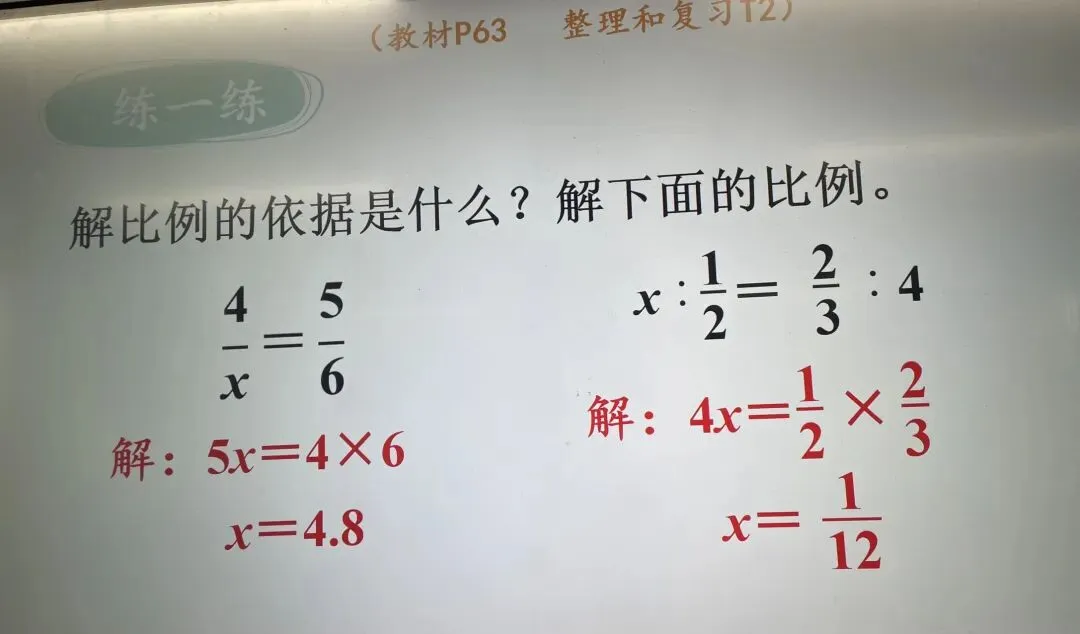 (教材P63 整理和复习T2)
练一练
解比例的依据是什么？解下面的比例。
4/x=5/6
x:1/2=2/3:4
解：5x=4×6
x=4.8
解：4x=1/2×2/3
x=1/12